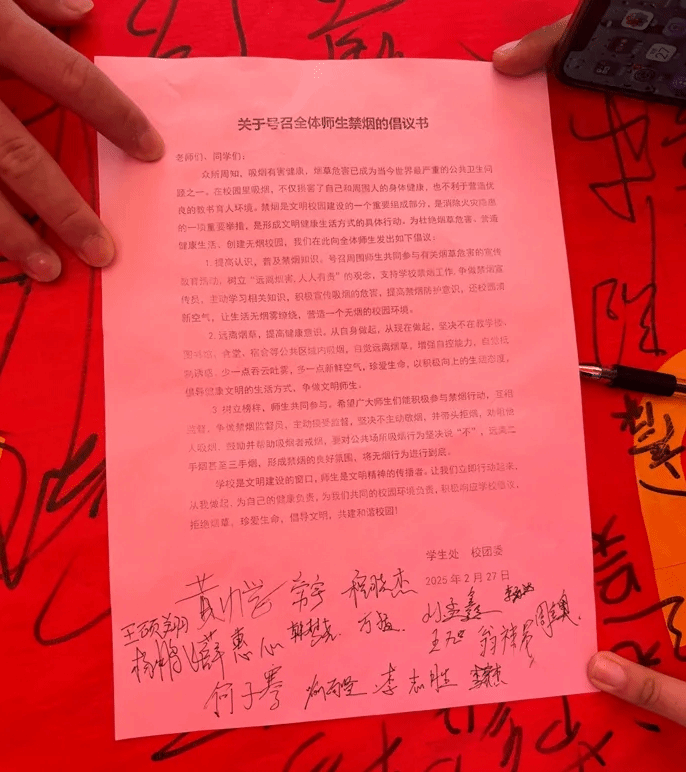 关于号召全体师生禁烟的倡议书
老师们、同学们：
众所周知，吸烟有害健康，烟草危害已成为当今世界最严重的公共卫生问
题之一。在校园里吸烟，不仅损害了自己和周围人的身体健康，也不利于营造优
良的教书育人环境。禁烟是文明校园建设的一个重要组成部分，是消除火灾隐患
的一项重要举措，是形成文明健康生活方式的具体行动。为杜绝烟草危害、营造
健康生活、创建无烟校园，我们在此向全体师生发出如下倡议：
1. 提高认识，普及禁烟知识。号召周围师生共同参与有关烟草危害的宣传
教育活动，树立“远离烟害、人人有责”的观念，支持学校禁烟工作，争做禁烟宣
传员，主动学习相关知识，积极宣传吸烟的危害，提高禁烟防护意识，还校园清
新空气，让生活无烟雾缭绕，营造一个无烟的校园环境。
2. 远离烟草，提高健康意识。从自身做起，从现在做起，坚决不在教学楼、
图书馆、食堂、宿舍等公共区域内吸烟。自觉远离烟草，增强自控能力，自觉抵
制诱惑，少一点吞云吐雾，多一点新鲜空气，珍爱生命，以积极向上的生活态度，
倡导健康文明的生活方式，争做文明师生。
3. 树立榜样，师生共同参与。希望广大师生们能积极参与禁烟行动，互相
监督，争优禁烟监督员，主动接受监督，坚决不主动敬烟，并带头拒烟，劝阻他
人吸烟、鼓励并帮助吸烟者戒烟，要对公共场所吸烟行为坚决说“不”，远离二
手烟甚至三手烟，形成禁烟的良好氛围，将无烟行为进行到底。
学校是文明建设的窗口，师生是文明精神的传播者。让我们立即行动起来，
从我做起，为自己的健康负责，为我们共同的校园环境负责，积极响应学校倡议，
拒绝烟草，珍爱生命，倡导文明，共建和谐校园！
学生处 校团委
2025年2月27日
王硕翔
薛惠心
何子骞 李志胜